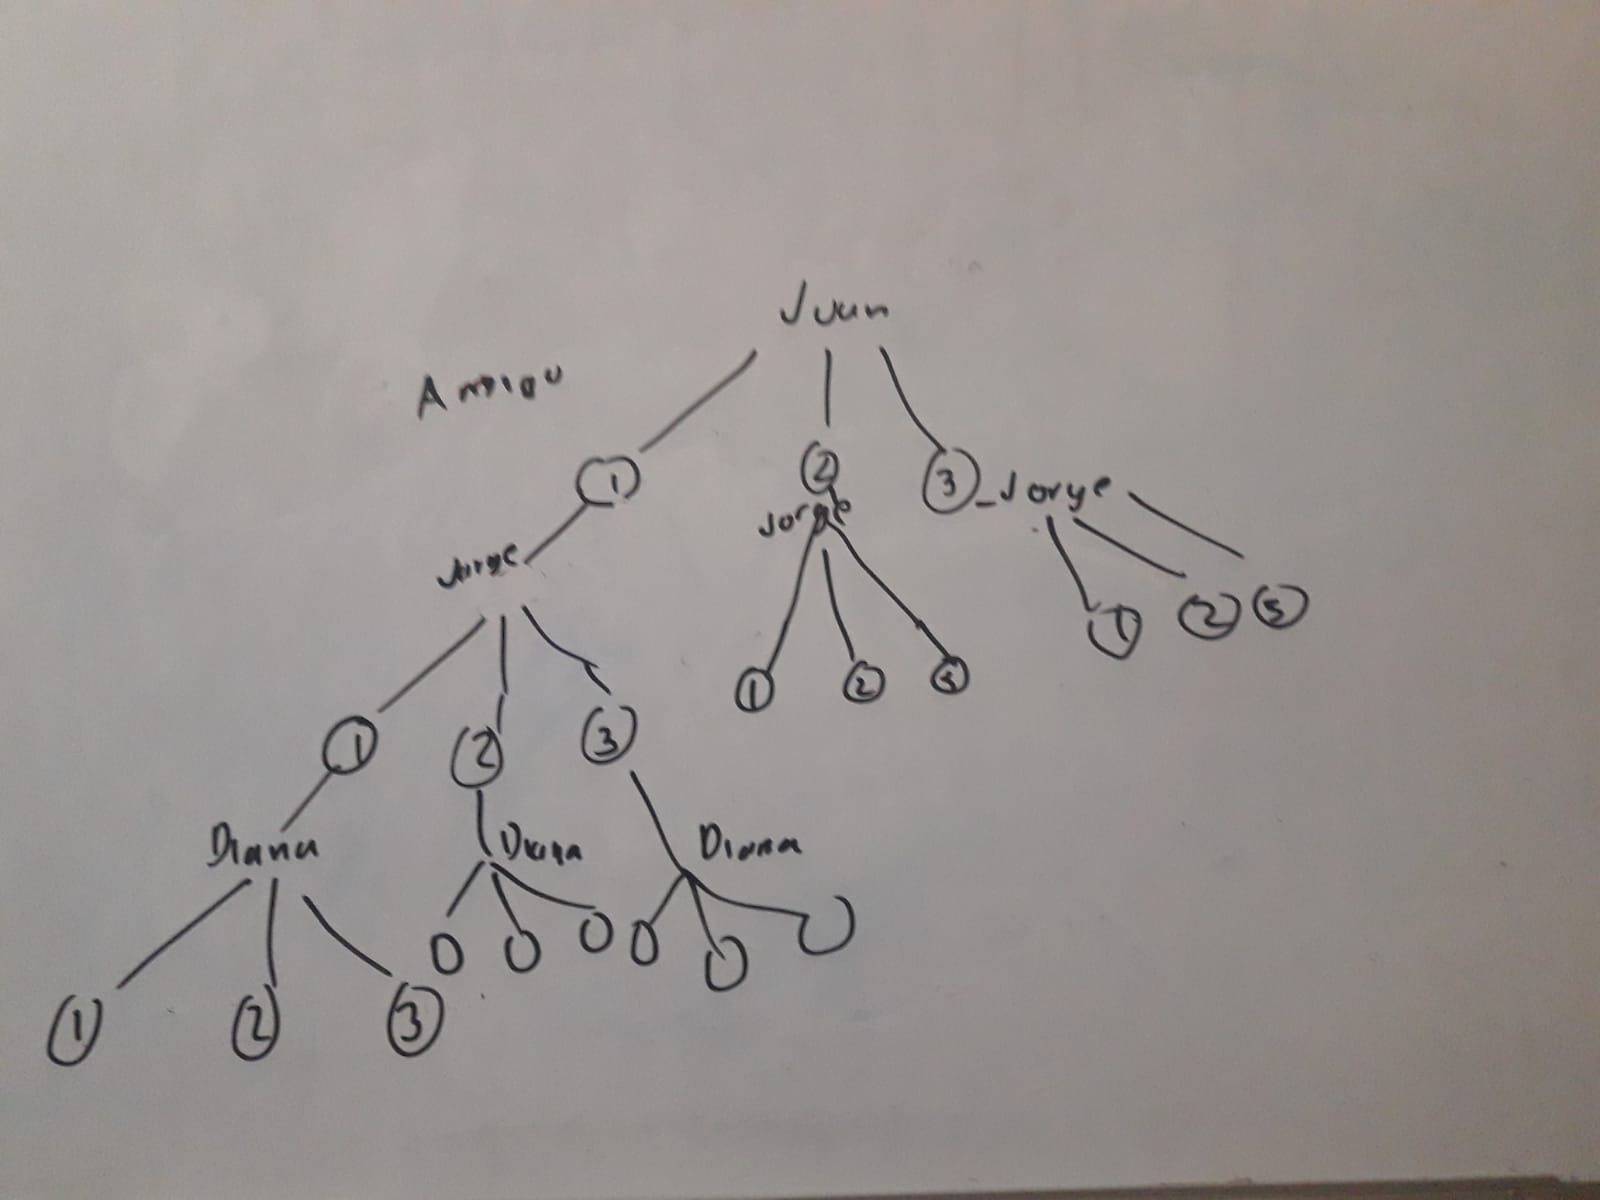 Juan
Amigo
①
②
③ Jorge
Jorge
Jorge
① ② ③
① ② ③
① ② ③
Diana Diana Diana
① ② ③